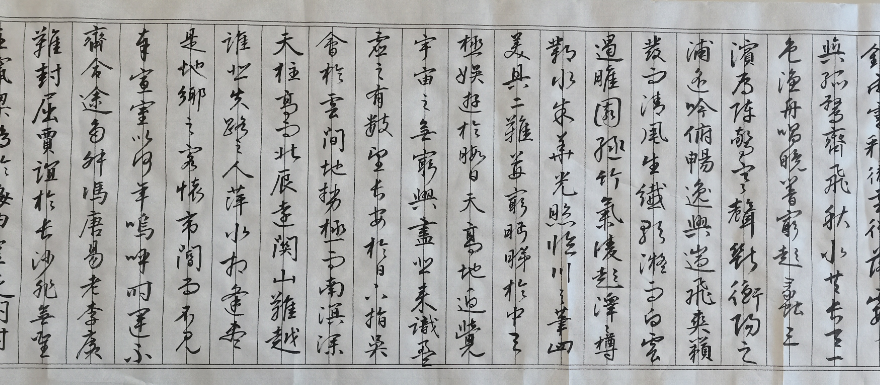 與孤鶩齊飛秋水共長天一
色漁舟唱晚響窮彭蠡之
濱雁陣驚寒聲斷衡陽之
浦遙吟俯暢逸興遄飛爽籟
發而清風生纖歌凝而白雲
遏睢園綠竹氣凌彭澤之樽
鄴水朱華光照臨川之筆四
美具二難並窮眄睇於中天
極娛遊於暇日天高地迥覺
宇宙之無窮興盡悲來識盈
虛之有數望長安於日下指吳
會於雲間地勢極而南溟深
天柱高而北辰遠關山難越
誰悲失路之人萍水相逢盡
是他鄉之客懷帝閽而不見
奉宣室以何年嗚呼時運不
齊命途多舛馮唐易老李廣
難封屈賈誼於長沙非無聖